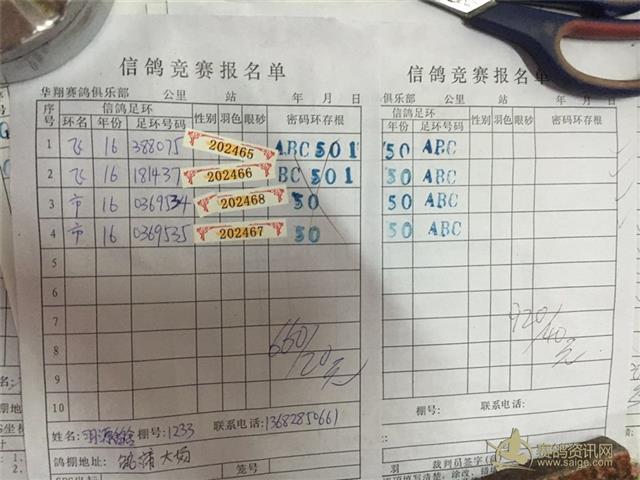 信鸽竞赛报名单
华翔赛鸽俱乐部 公里 站 年 月 日
序号 信鸽足环 性别 羽色 眼砂 密码环存根
环名 年份 足环号码
1 飞 16 388075 202465 ABC 501
2 飞 16 181437 202466 BC 501
3 市 16 0369534 202468 50
4 市 16 0369535 202467 50
5
6
7
8
9
10
660/20元
联系电话:13682850661
姓名: 棚号:1233
鸽棚地址: 清大
签号
信鸽竞赛报名单
俱乐部 公里 站 年 月 日
信鸽足环 性别 羽色 眼砂 密码环存根
年份 足环号码
50 ABC
50 ABC
50 ABC
50 ABC
920/40元
棚号: 联系电话:
羽 裁判员签字
赛鸽资讯网
www.saige.com